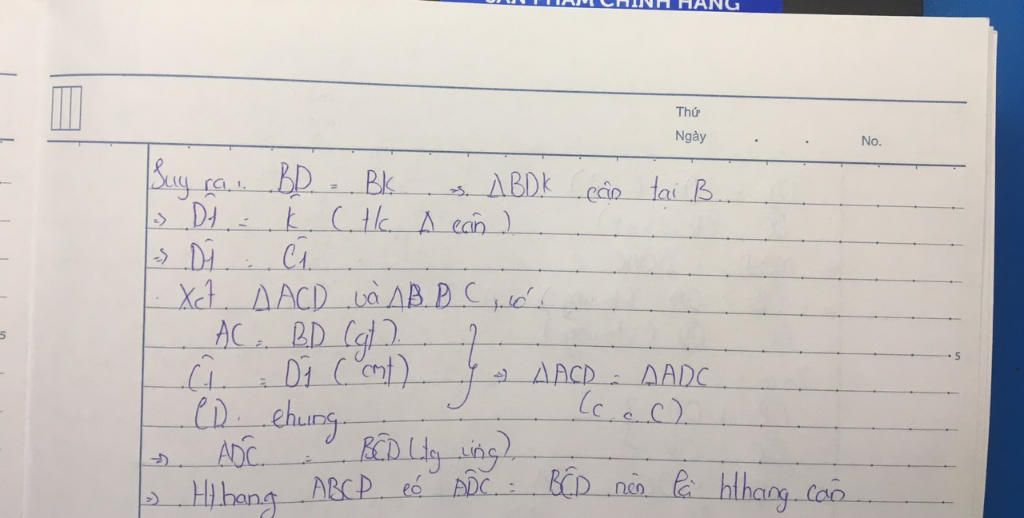 SẢN PHẨM CHÍNH HÃNG
Thứ
Ngày . . No.
Suy ra: BD = BK => ΔBDK cân tại B
=> D̂1 = K̂ ( t/c Δ cân )
=> D̂1 = Ĉ1
Xét ΔACD và ΔBDC, có:
AC = BD (gt)
5
5
Ĉ1 = D̂1 ( cmt) } => ΔACD = ΔADC
CD chung (c . c)
=> AD̂C = BĈD (tg ứng)
=> Hthang ABCD có AD̂C = BĈD nên là hthang cân